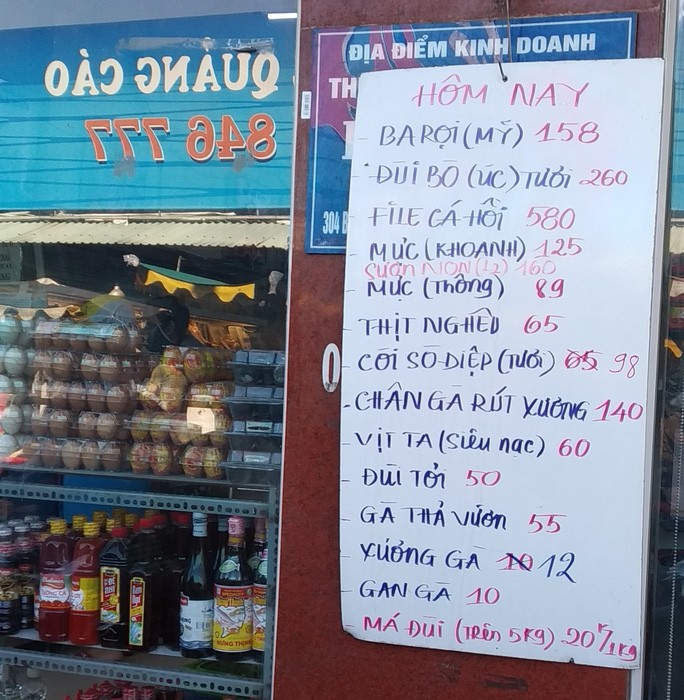 QUANG CÀO
846 777
ĐỊA ĐIỂM KINH DOANH
TH
304 B
HÔM NAY
- BA RỌI (MỸ) 158
- ĐÙI BÒ (ÚC) TƯƠI 260
- FILE CÁ HỒI 580
- MỰC (KHOANH) 125
SƯỜN NON (L2) 160
- MỰC (Thông) 89
- THỊT NGHÊU 65
- CỒI SÒ ĐIỆP (Tươi) 65 98
- CHÂN GÀ RÚT XƯƠNG 140
- VỊT TA (Siêu nạc) 60
- ĐÙI TỎI 50
- GÀ THẢ VƯỜN 55
- XƯƠNG GÀ 10 12
- GAN GÀ 10
- MÁ ĐÙI (Trên 5kg) 20K/1kg